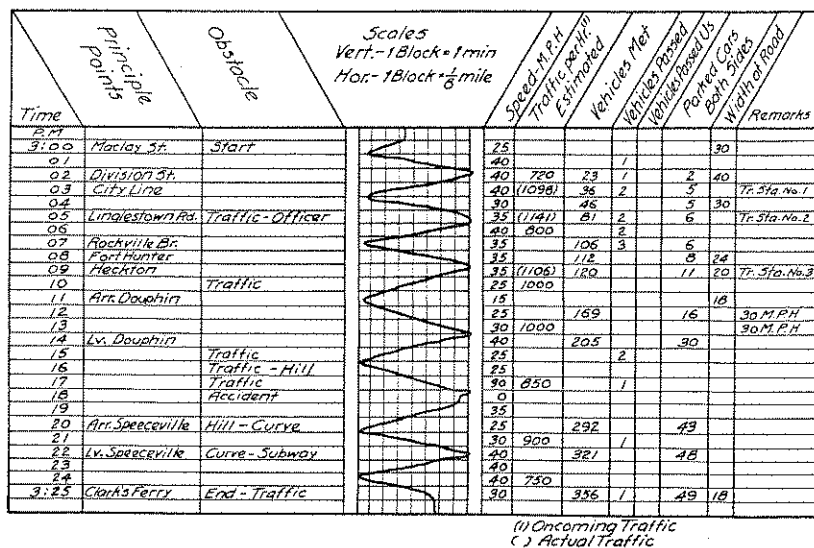 Time
Principle Points
Obstacle
Scales
Vert.-1 Block = 1 min
Hor.- 1 Block = 1/6 mile
Speed-M.P.H
Traffic per Hr.(1) Estimated
Vehicles Met
Vehicles Passed
Vehicles Passed Us
Parked Cars Both Sides
Width of Road
Remarks
P.M
3:00 Maclay St. Start 25 30
01 40 1
02 Division St. 40 720 23 1 2 40
03 City Line 40 (1098) 36 2 5 Tr. Sta. No. 1
04 30 46 5 30
05 Linglestown Rd. Traffic-Officer 35 (1141) 81 2 6 Tr. Sta. No. 2
06 40 800 2
07 Rockville Br. 35 106 3 6
08 Fort Hunter 35 112 8 24
09 Heckton 35 (1106) 120 11 20 Tr. Sta. No. 3
10 Traffic 25 1000
11 Arr. Dauphin 15 18
12 25 169 16 30 M.P.H
13 30 1000 30 M.P.H
14 Lv. Dauphin 40 205 30
15 Traffic 25 2
16 Traffic - Hill 25
17 Traffic 30 850 1
18 Accident 0
19 35
20 Arr. Speeceville Hill - Curve 25 292 43
21 30 900 1
22 Lv. Speeceville Curve - Subway 40 321 48
23 40
24 40 750
3:25 Clark's Ferry End - Traffic 30 356 1 49 18
(1) Oncoming Traffic
( ) Actual Traffic